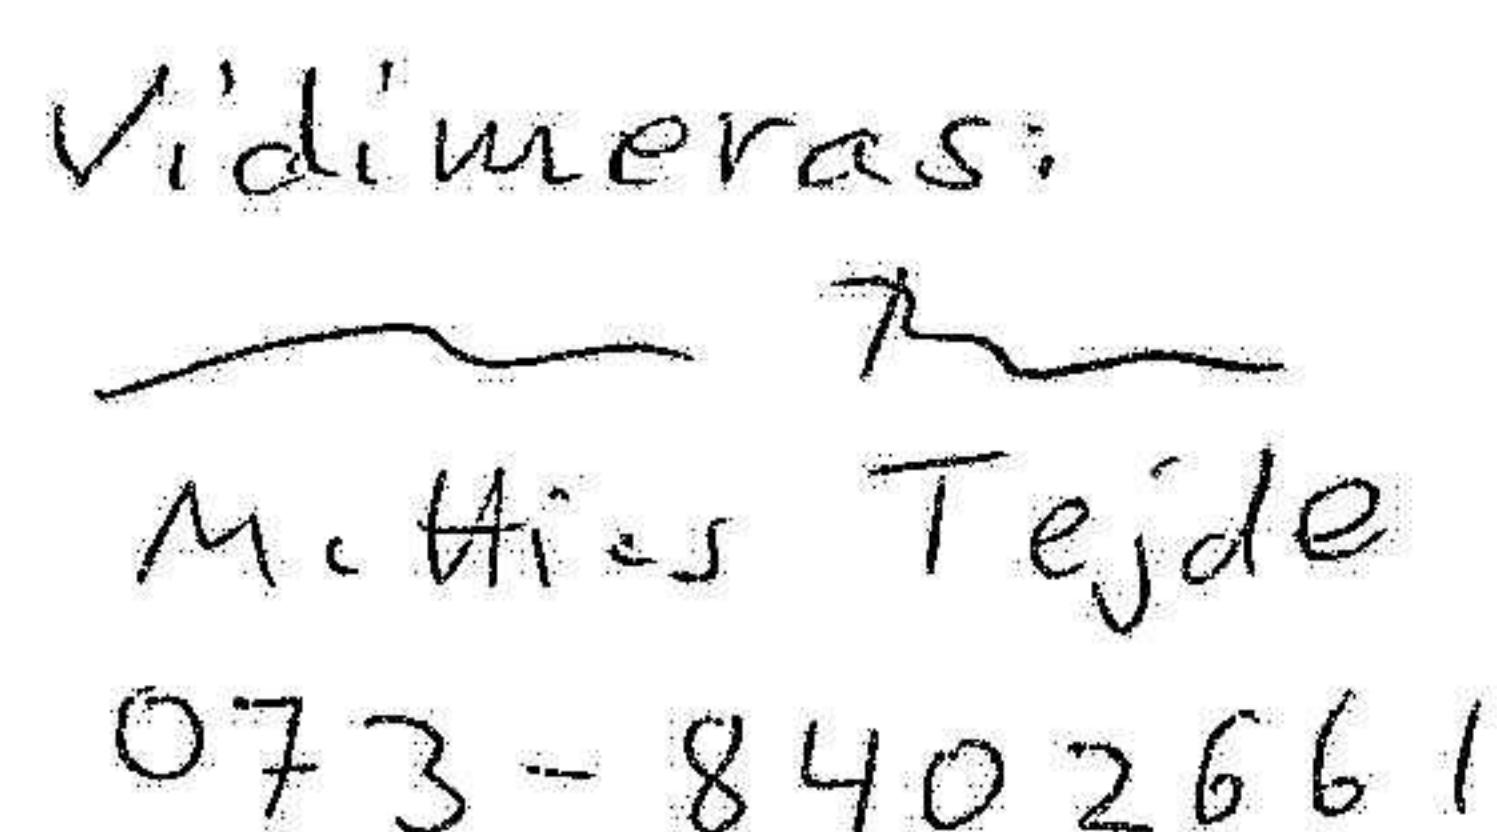 Vidimeras:
Mattias Tejde
073-8402661